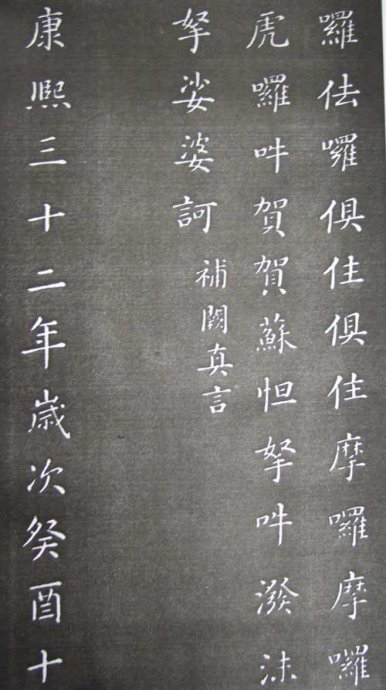 羅佉囉俱住俱住摩囉摩囉
虎囉吽賀賀蘇怛拏吽潑沫
拏娑婆訶 補闕真言
康熙三十二年歲次癸酉十